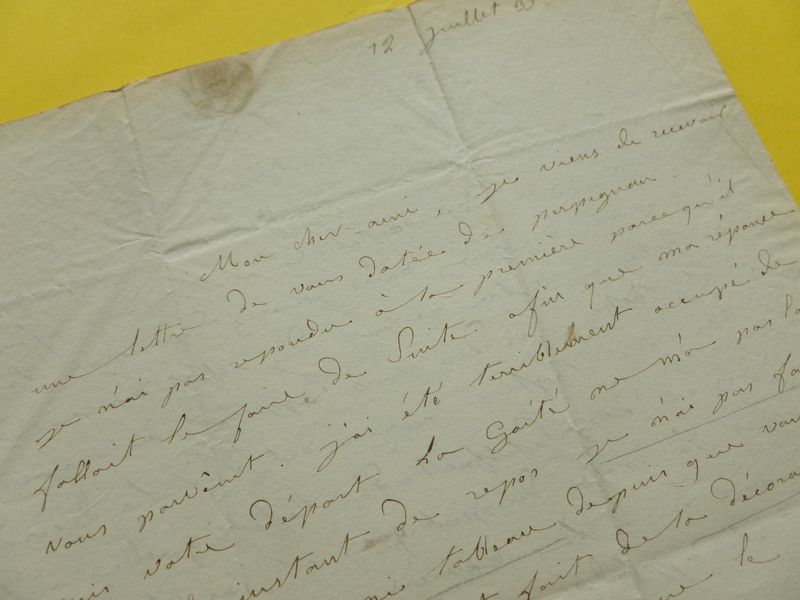 12 juillet 33
Mon cher ami, je viens de recevoir
une lettre de vous datée de perpignan.
je n'ai pas repondu à la première parce qu'il
fallait le faire de Suite. afin que ma réponse
vous parvînt. j'ai été terriblement occupé de
votre départ La Gaité ne m'a pas
instant de repos je n'ai pas
tableau depuis que
fait de la
le